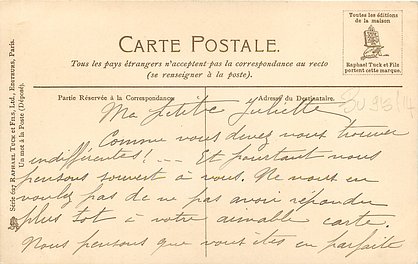 CARTE POSTALE.
Tous les pays étrangers n'acceptent pas la correspondance au recto
(se renseigner à la poste).
Toutes les éditions
de la maison
Raphael Tuck et Fils
portent cette marque.
Partie Réservée à la Correspondance.
Adresse du Destinataire.
Série 697 RAPHAEL TUCK ET FILS, LTD., EDITEURS, PARIS.
Un mot à la Poste (Déposé).
Ma petite Juliette
Comme vous devez nous trouver
indifférentes!... Et pourtant nous
pensons souvent à vous. Ne nous en
voulez pas de ne pas avoir répondu
plus tot à votre aimable carte.
Nous pensons que vous êtes en parfaite